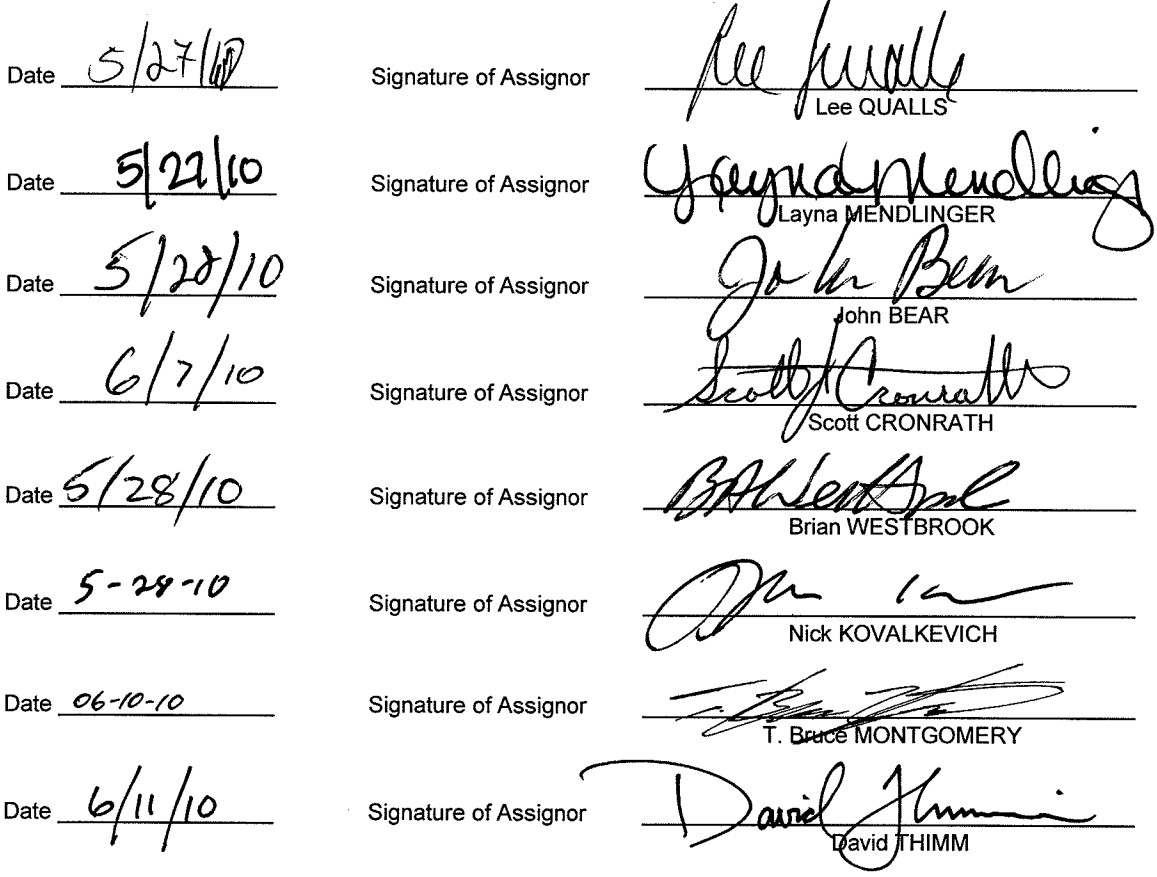 Date 5/27/10 Signature of Assignor Lee Qualls
Lee QUALLS
Date 5/27/10 Signature of Assignor Layna Mendlinger
Layna MENDLINGER
Date 5/28/10 Signature of Assignor John Bear
John BEAR
Date 6/7/10 Signature of Assignor Scott J Cronrath
Scott CRONRATH
Date 5/28/10 Signature of Assignor BA Westbrook
Brian WESTBROOK
Date 5-28-10 Signature of Assignor
Nick KOVALKEVICH
Date 06-10-10 Signature of Assignor T. Bruce
T. Bruce MONTGOMERY
Date 6/11/10 Signature of Assignor David Thimm
David THIMM